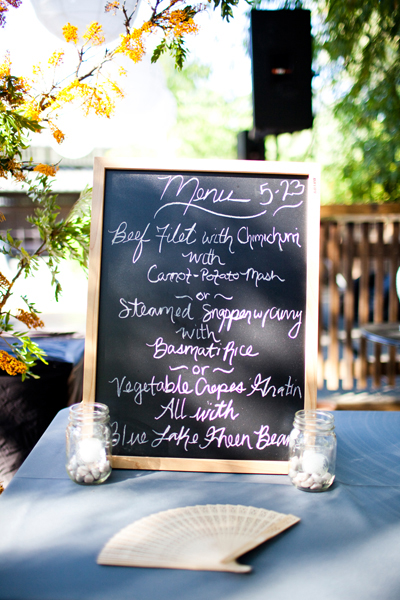 Menu 5.23
Beef Filet with Chimichurri
with
Carrot-Potato Mash
~ or ~
Steamed Snapper w/ Curry
with
Basmati Rice
~ or ~
Vegetable Crepes Gratin
All with
Blue Lake Green Beans